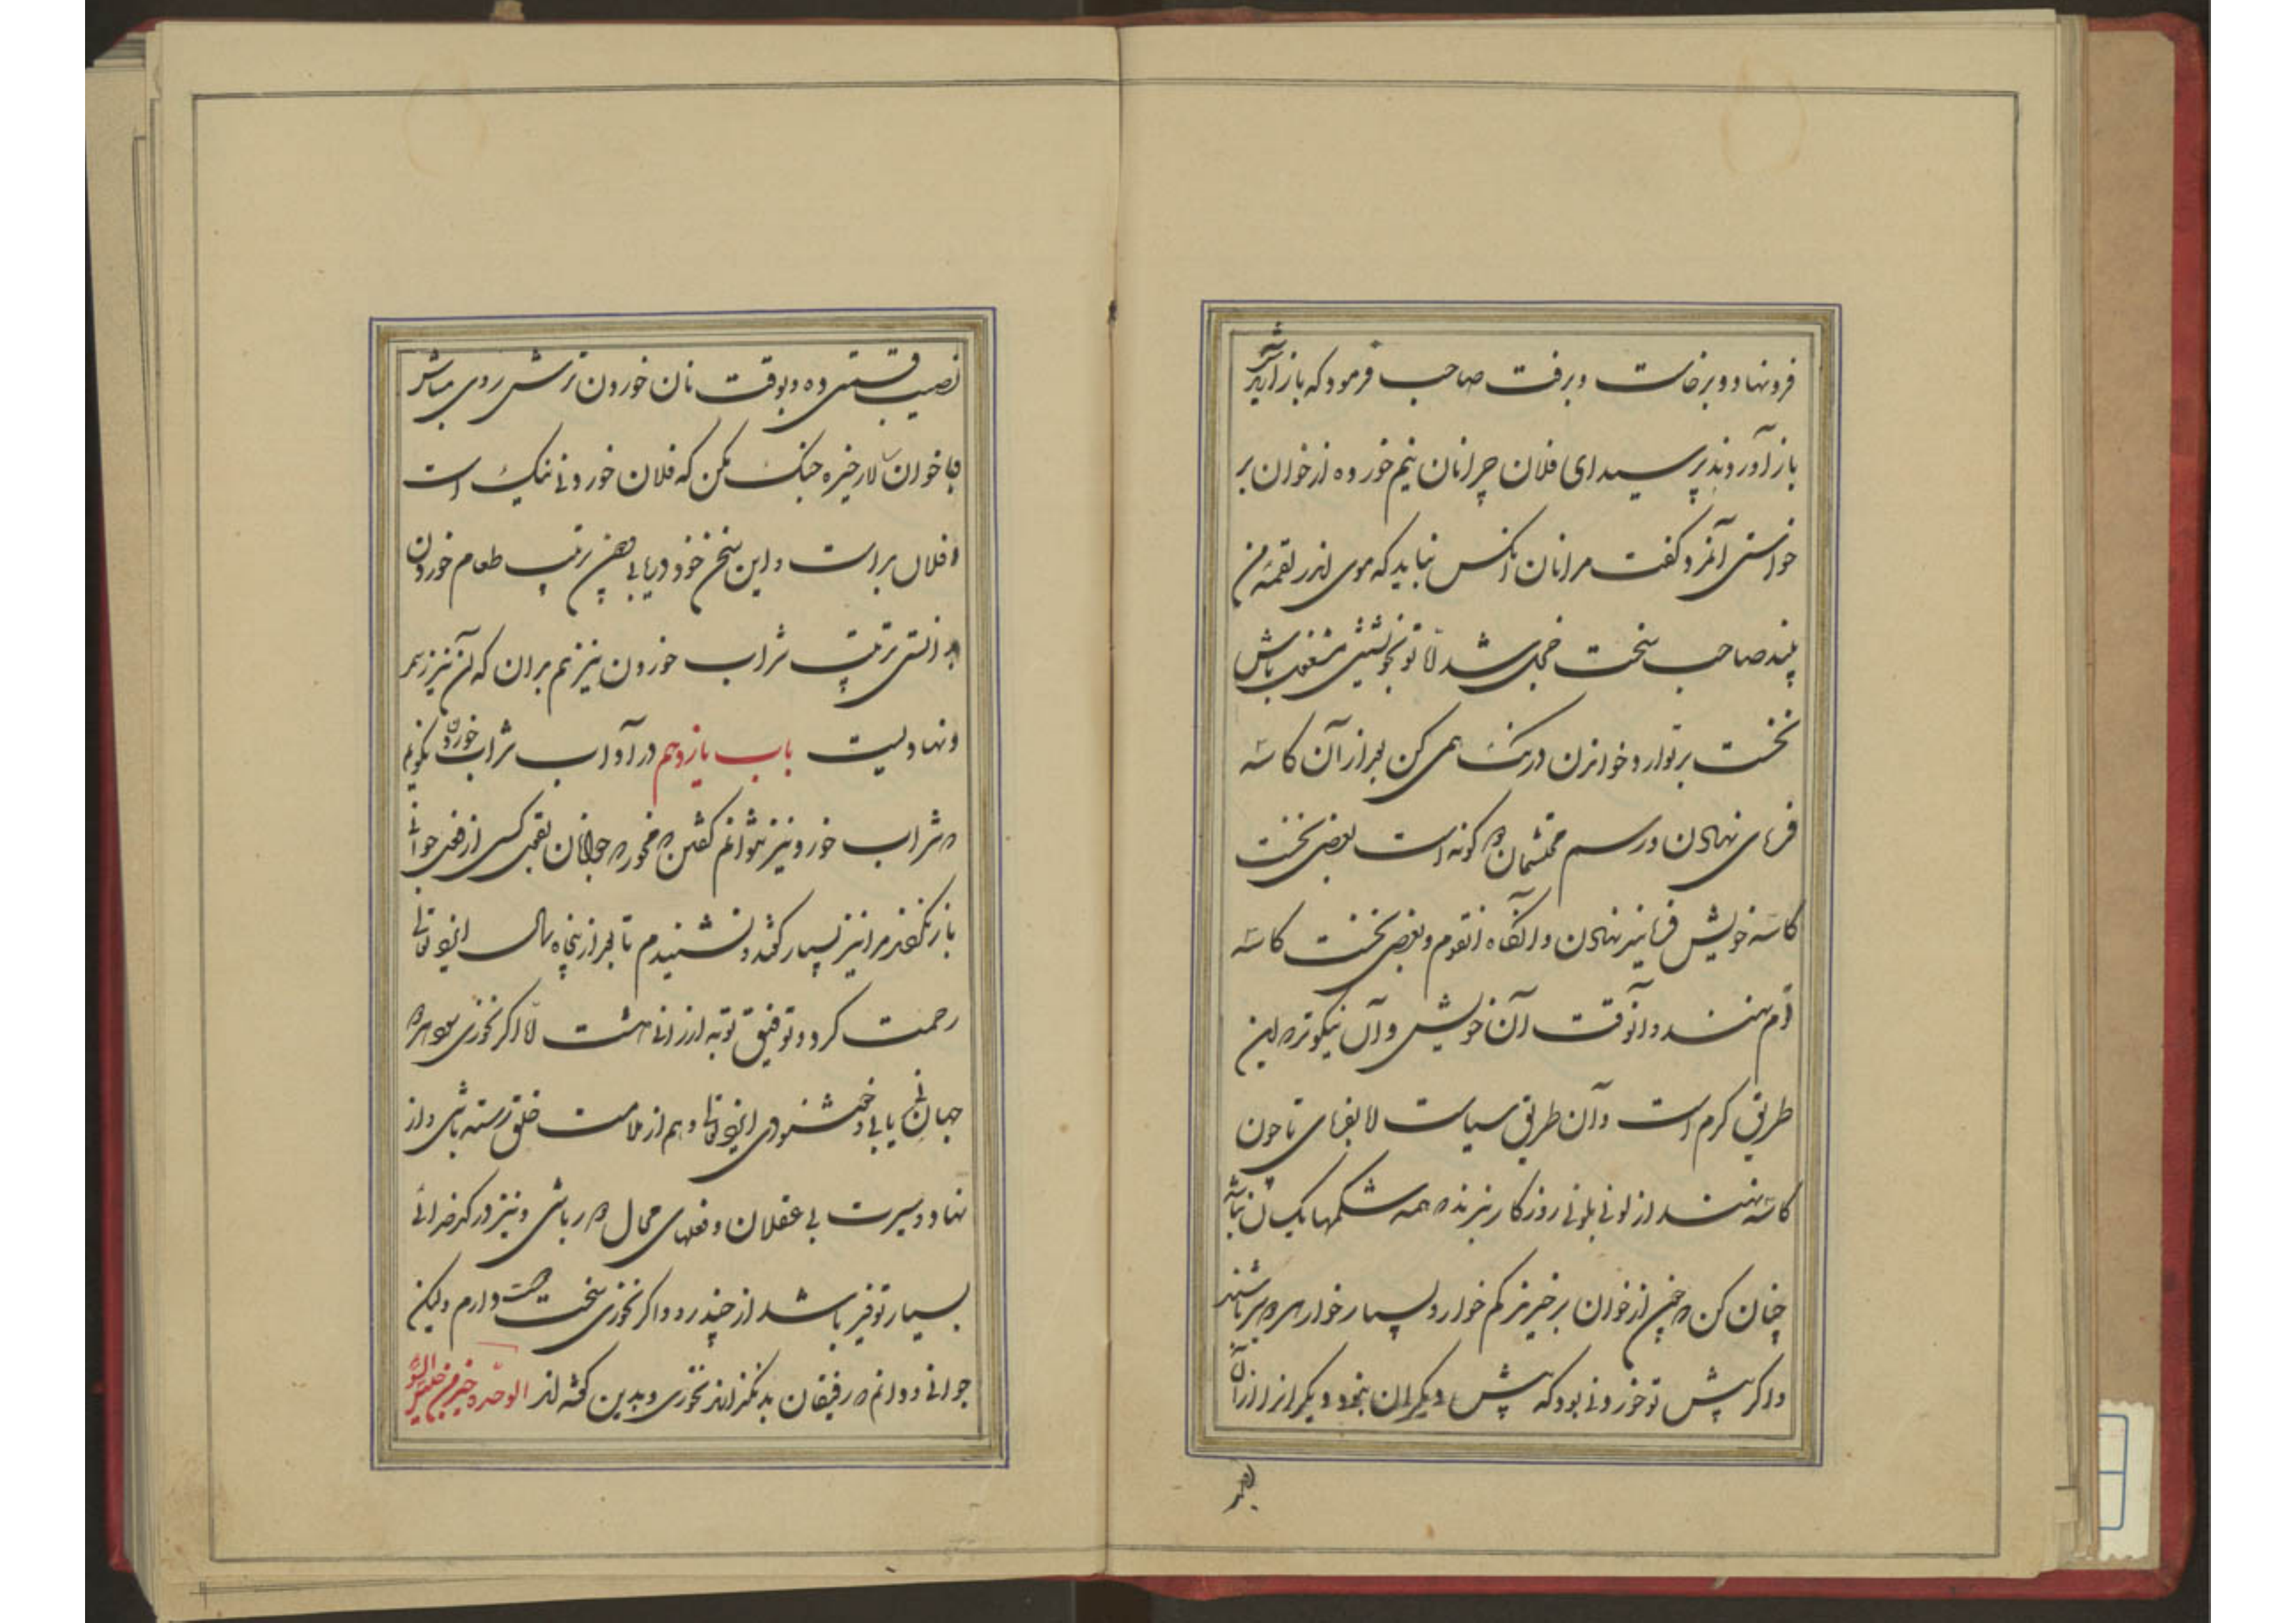 فرونهاد و برخاست و برفت صاحب فرمود که باز آریدش
باز آوردند پرسید ای فلان چرا نان نیم خورده از خوان بر
خواستی آنمرد گفت مرا نان آنکس نباید که موی اندر لقمهٔ من
بیند صاحب سخت خجل شد اما تو بخویشتن مشغول باش
نخست بر تو ارد خواندن درنگ همی کن بعد از آن کاسه
فرمای نهادن و رسم محتشمان دو گونه است بعضی نخست
کاسه خویش فرمایند نهادن و آنگاه از قوم و بعضی نخست کاسه
قوم نهند و آنوقت آن خویش و آن نیکوتر که این
طریق کرم است و آن طریق سیاست اما بفرمای تا چون
کاسه نهند از لونی بلونی روزگار برند که همه شکمها یکسان نباشد
چنان کن که چون از خوان برخیزند کم خوار و بسیار خوار همه سیر باشند
و اگر پیش تو خوردنی بود که پیش دیگران نبود دیگرانرا از آن
نصیب
نصیب قسمتی ده و بوقت نان خوردن ترش روی مباش
با خوان سالار خیره جنگ مکن که فلان خوردنی نیک است
و فلان بد است و این سخن خود دریابی چون ترتیب طعام خوردن
بدانستی ترتیب شراب خوردن نیز هم بدان که آن نیز رسم
و نهادیست باب یازدهم در آداب شراب خوردن بگویم
که شراب خور و نیز نتوانم گفتن که مخور که جوانان بقول کسی از فعل جوانی
باز نگردند مرا نیز بسیار گفتند و نشنیدم تا بعد از پنجاه سال ایزد تعالی
رحمت کرد و توفیق توبه ارزانی داشت اما اگر نخوری سود هر دو
جهانی یابی و خشنودی ایزد تعالی و هم از ملامت خلق رسته باشی و از
نهاد و سیرت بی عقلان و فعلهای محال دور باشی و نیز در کدخدائی
بسیار توفیر باشد از چند رو و اگر نخوری سخت دوست دارم ولیکن
جوانی و دانم که رفیقان بد نگذارند نخوری و بدین گفته اند الوحدة خیر من جلیس السوء